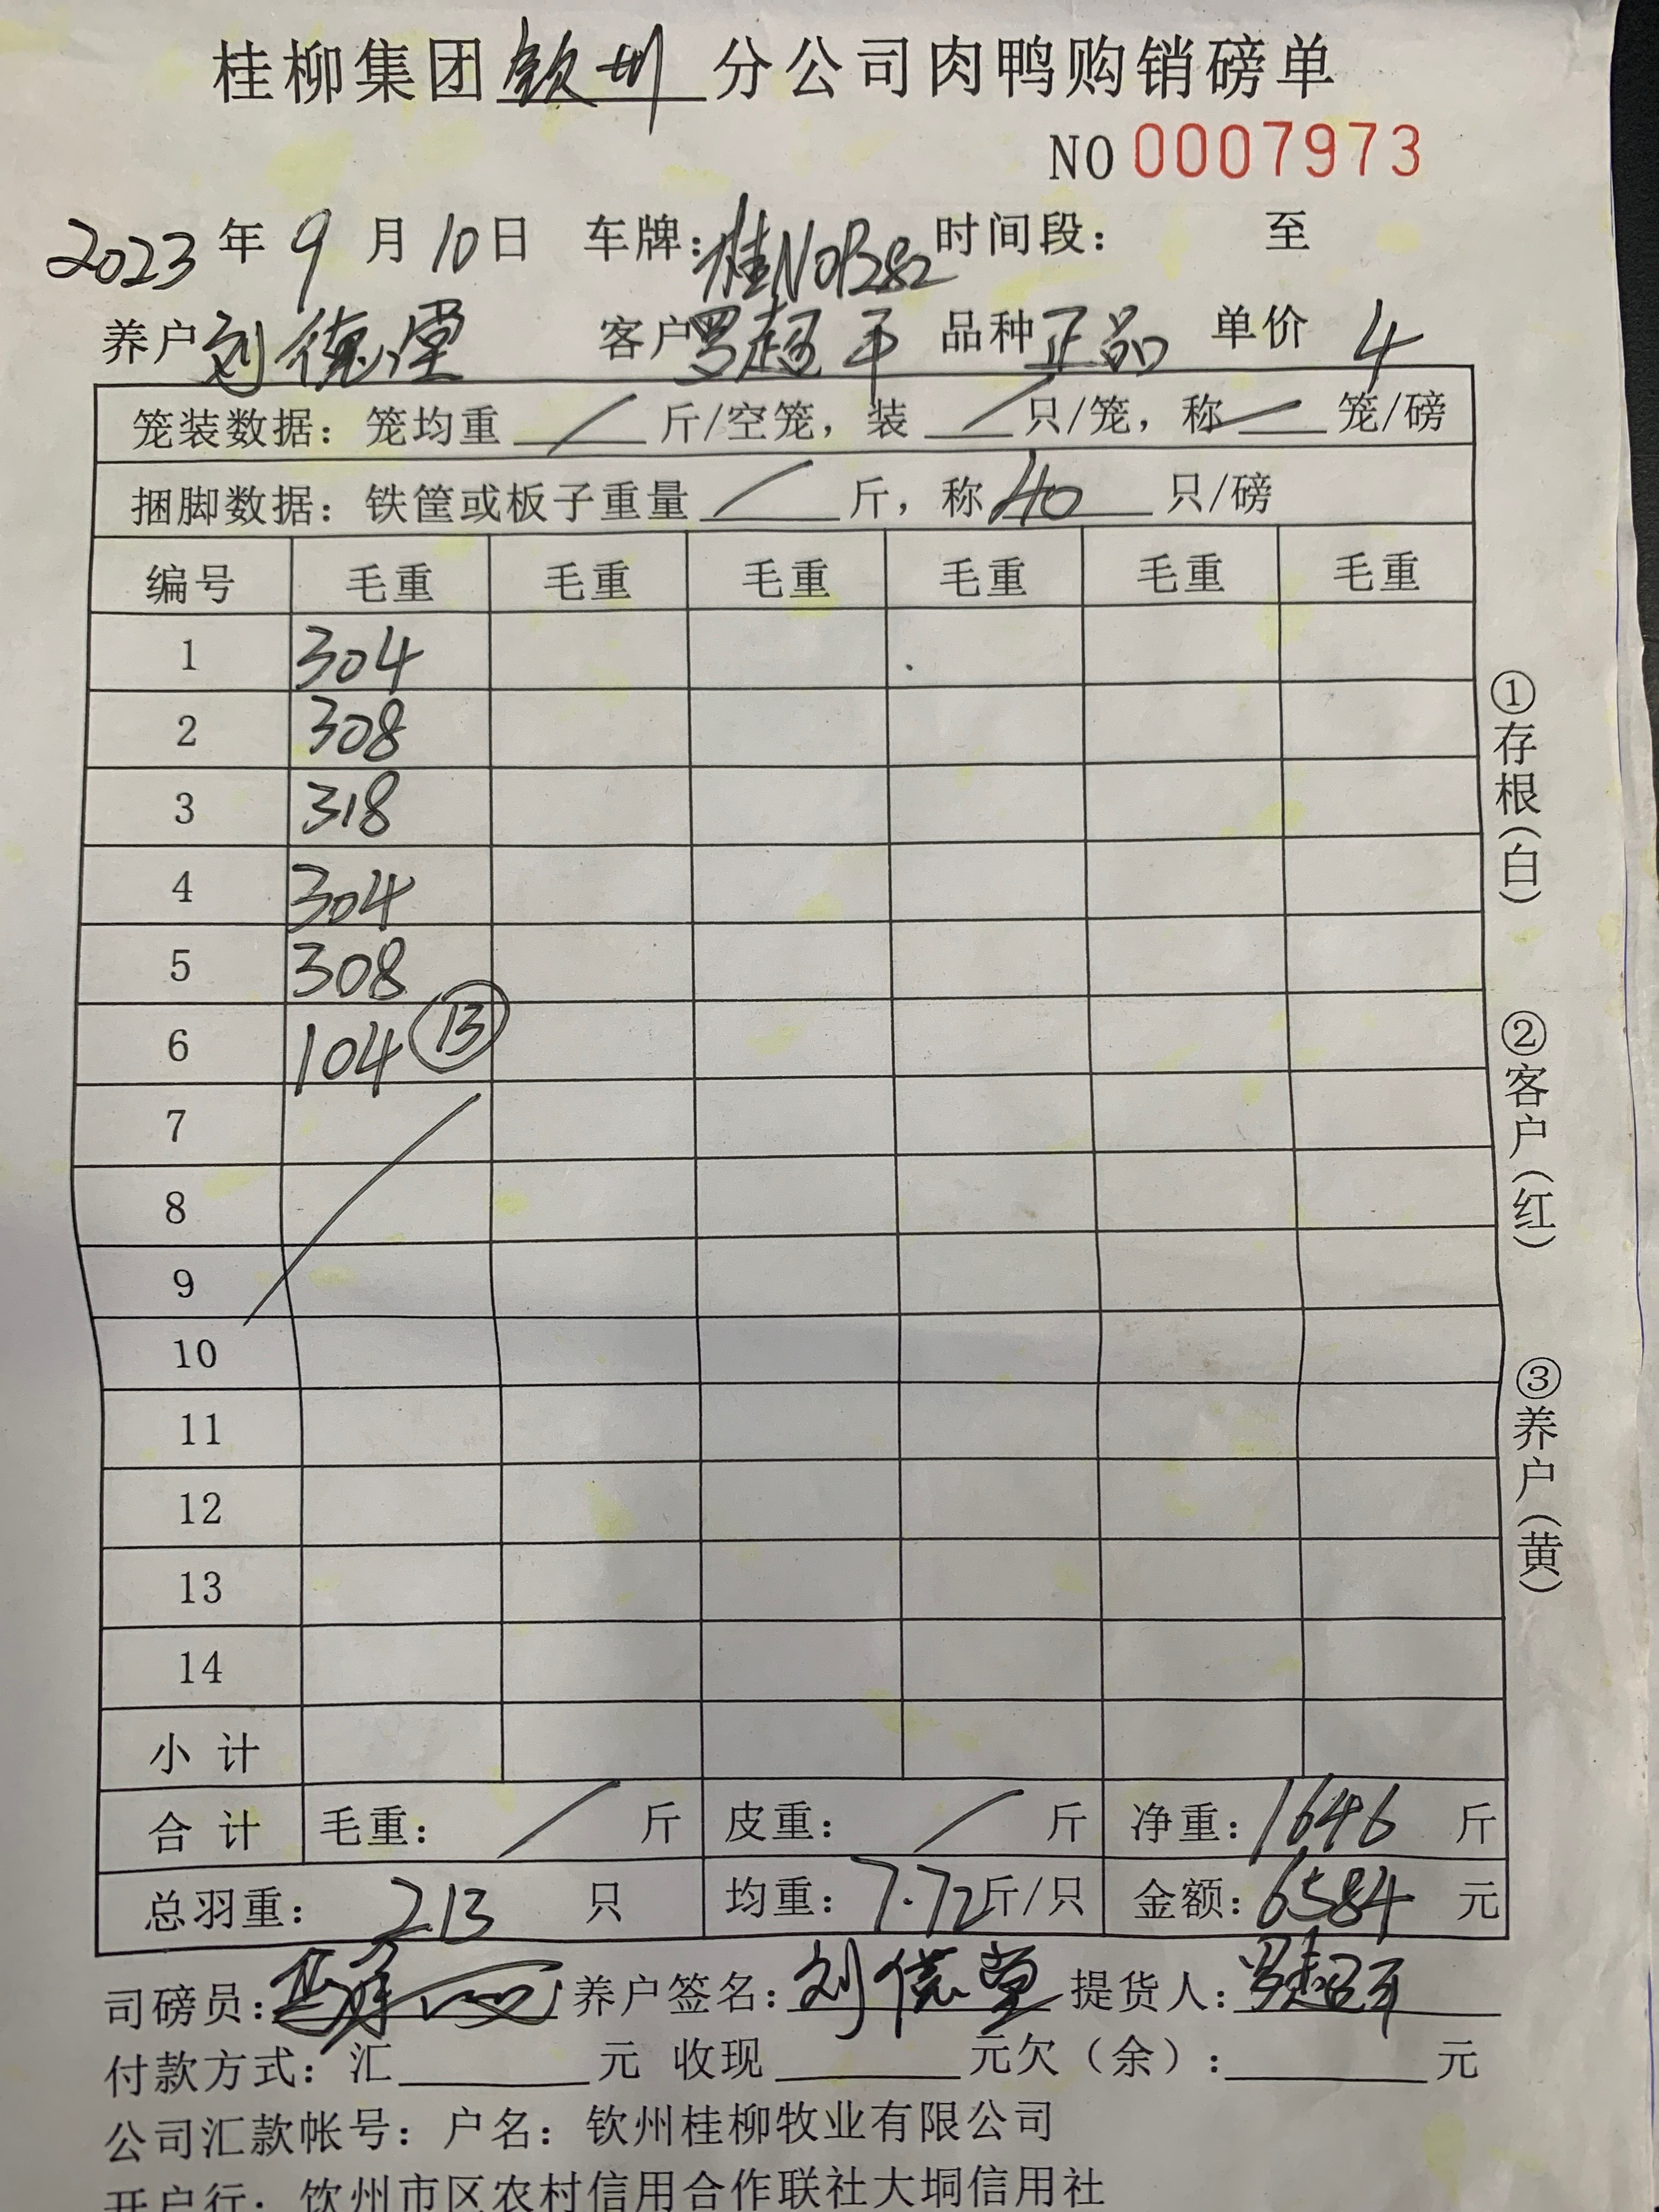 桂柳集团钦州分公司肉鸭购销磅单
NO 0007973
2023年9月10日 车牌:桂N0B282 时间段: 至
养户刘德堂 客户罗超平 品种正品 单价 4
笼装数据:笼均重 / 斤/空笼,装 / 只/笼,称 / 笼/磅
捆脚数据:铁筐或板子重量 / 斤,称40只/磅
编号 毛重 毛重 毛重 毛重 毛重 毛重
1 304
2 308
3 318
4 304
5 308
6 104 ⑬
7
8
9
10
11
12
13
14
小计
合计 毛重: / 斤 皮重: / 斤 净重:1646 斤
总羽重: 213 只 均重:7.72斤/只 金额:6584 元
司磅员: 养户签名:刘德堂 提货人:罗超平
付款方式:汇 元 收现 元欠(余): 元
公司汇款帐号:户名:钦州桂柳牧业有限公司
开户行:钦州市区农村信用合作联社大垌信用社
①存根(白)
②客户(红)
③养户(黄)